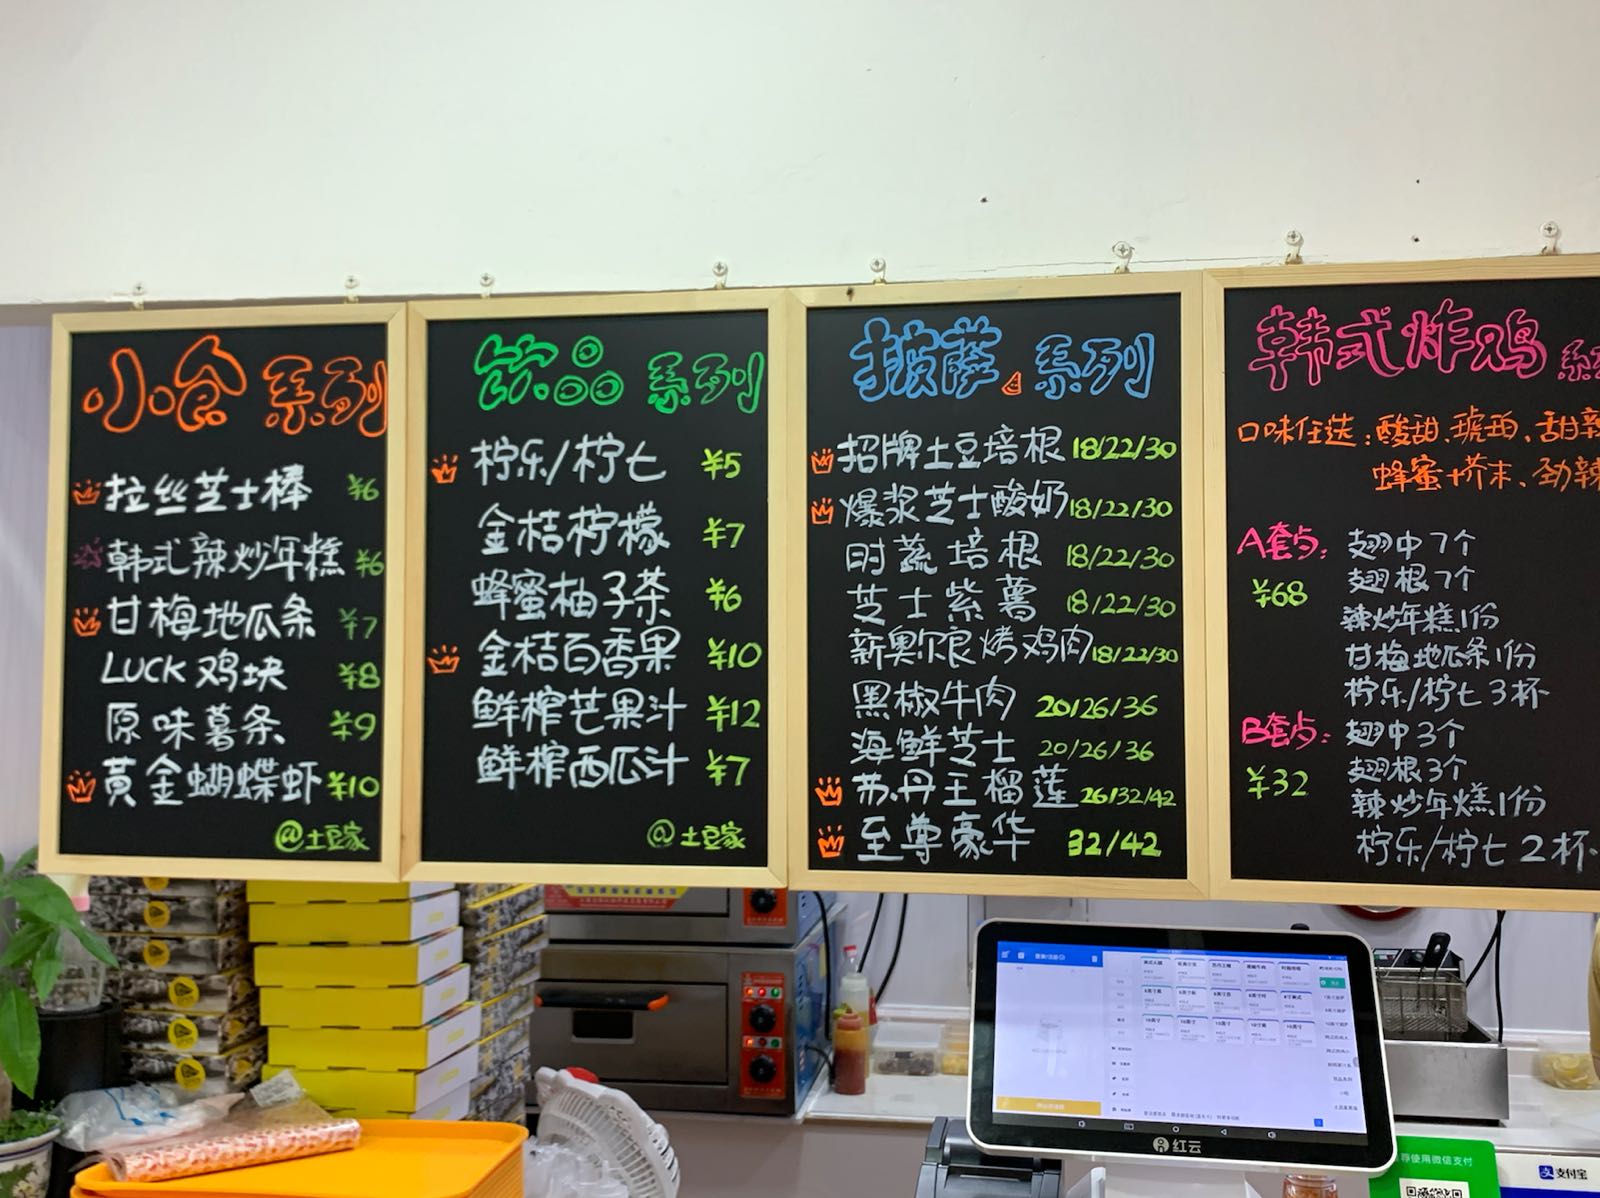 小食系列
拉丝芝士棒 ¥6
韩式辣炒年糕 ¥6
甘梅地瓜条 ¥7
LUCK 鸡块 ¥8
原味薯条 ¥9
黄金蝴蝶虾 ¥10
@土豆家
饮品系列
柠乐/柠七 ¥5
金桔柠檬 ¥7
蜂蜜柚子茶 ¥6
金桔百香果 ¥10
鲜榨芒果汁 ¥12
鲜榨西瓜汁 ¥7
@土豆家
披萨系列
招牌土豆培根 18/22/30
爆浆芝士酸奶 18/22/30
时蔬培根 18/22/30
芝士紫薯 18/22/30
新奥尔良烤鸡肉 18/22/30
黑椒牛肉 20/26/36
海鲜芝士 20/26/36
苏丹王榴莲 26/32/42
至尊豪华 32/42
韩式炸鸡系
口味任选:酸甜、琥珀、甜辣
蜂蜜+芥末、劲辣
A套占: 翅中7个
¥68 翅根7个
辣炒年糕1份
甘梅地瓜条1份
柠乐/柠七3杯
B套占: 翅中3个
¥32 翅根3个
辣炒年糕1份
柠乐/柠七2杯
红云
荐使用微信支付
支付宝